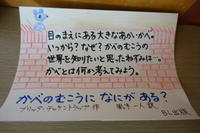 目のまえにある大きなあかいかべ。
いつから?なぜ?かべのむこうの
世界を知りたいと思ったねずみは…
かべとは何か考えてみよう。
かべのむこうに なにが ある?
ブリッタ・テッケントラップ 作 風木一人 訳 BL出版